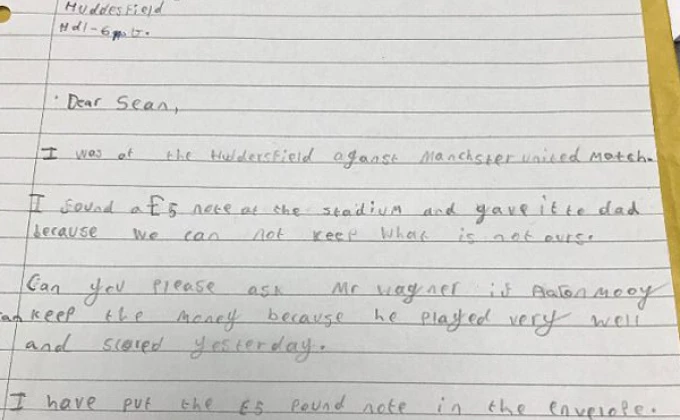 Huddesfield
Hd1-6
Dear Sean,
I was at the Huldersfield aganst Manchster united Match.
I found a £5 note at the stadium and gave it to dad
because we can not keep what is not ours.
Can you please ask Mr wagner if Aaron mooy
can keep the money because he played very well
and scored yesterday.
I have put the £5 pound note in the envelope.